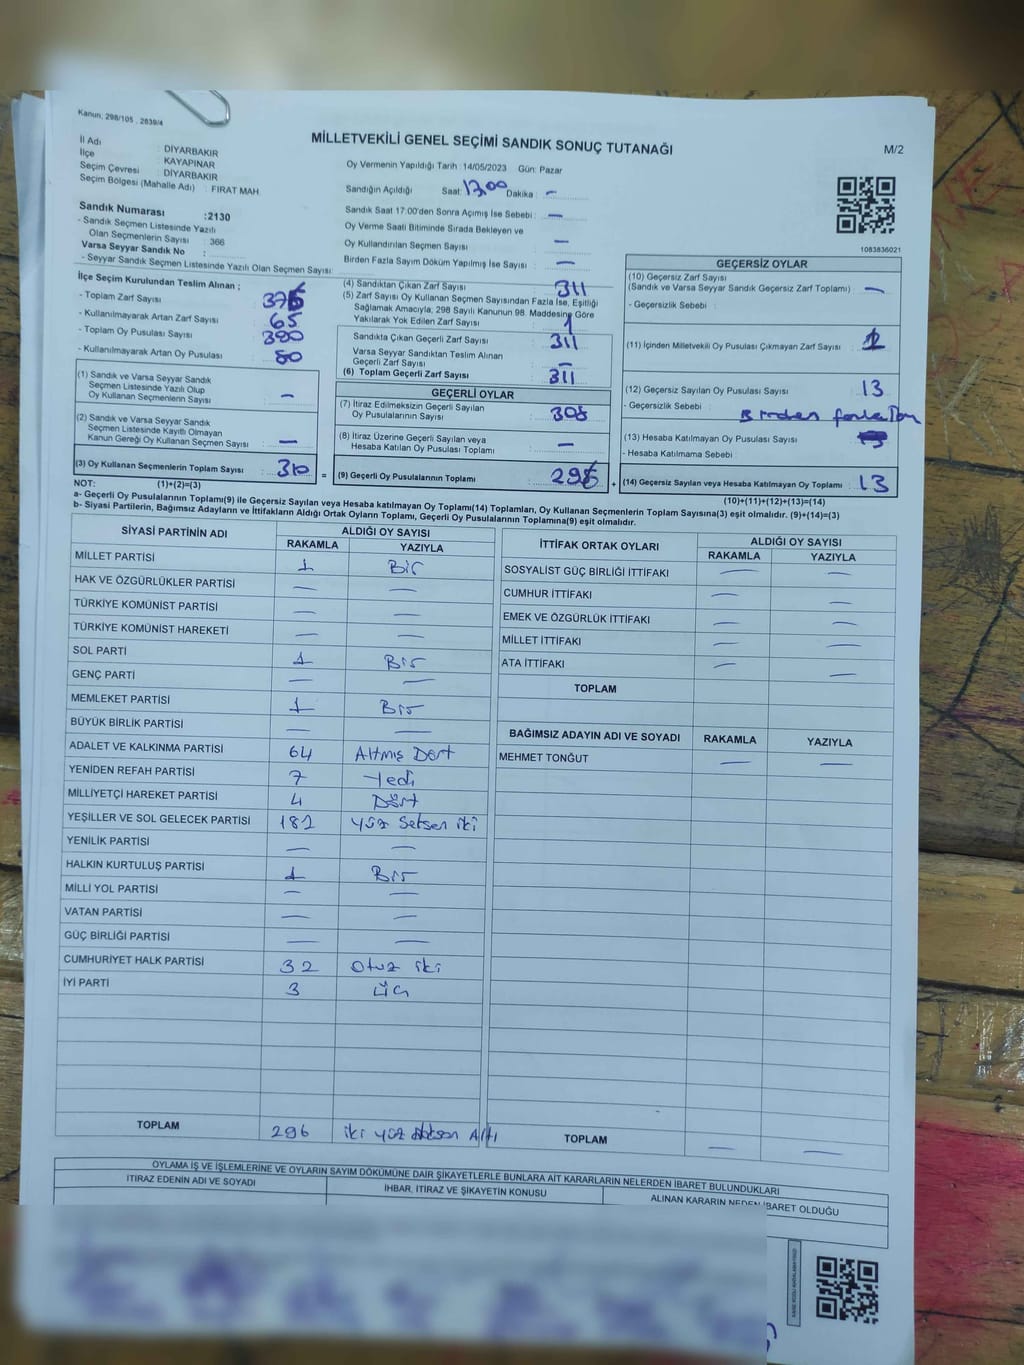 Kanun; 298/105 , 2839/4
MİLLETVEKİLİ GENEL SEÇİMİ SANDIK SONUÇ TUTANAĞI
M/2
İl Adı : DİYARBAKIR
İlçe : KAYAPINAR
Seçim Çevresi : DİYARBAKIR
Seçim Bölgesi (Mahalle Adı) : FIRAT MAH.
Sandık Numarası :2130
- Sandık Seçmen Listesinde Yazılı
Olan Seçmenlerin Sayısı : 366
Varsa Seyyar Sandık No :
- Seyyar Sandık Seçmen Listesinde Yazılı Olan Seçmen Sayısı:
Oy Vermenin Yapıldığı Tarih :14/05/2023 Gün: Pazar
Sandığın Açıldığı Saat: 17.00 Dakika : —
Sandık Saat 17:00'den Sonra Açımış İse Sebebi : —
Oy Verme Saati Bitiminde Sırada Bekleyen ve
Oy Kullandırılan Seçmen Sayısı : —
Birden Fazla Sayım Döküm Yapılmış İse Sayısı : —
1083836021
İlçe Seçim Kurulundan Teslim Alınan ;
- Toplam Zarf Sayısı :
- Kullanılmayarak Artan Zarf Sayısı : 65
- Toplam Oy Pusulası Sayısı :
- Kullanılmayarak Artan Oy Pusulası : 80
(1) Sandık ve Varsa Seyyar Sandık
Seçmen Listesinde Yazılı Olup
Oy Kullanan Seçmenlerin Sayısı : —
(2) Sandık ve Varsa Seyyar Sandık
Seçmen Listesinde Kayıtlı Olmayan
Kanun Gereği Oy Kullanan Seçmen Sayısı : —
(3) Oy Kullanan Seçmenlerin Toplam Sayısı : 310 =
(4) Sandıktan Çıkan Zarf Sayısı : 311
(5) Zarf Sayısı Oy Kullanan Seçmen Sayısından Fazla İse, Eşitliği
Sağlamak Amacıyla, 298 Sayılı Kanunun 98. Maddesine Göre
Yakılarak Yok Edilen Zarf Sayısı : 1
Sandıkta Çıkan Geçerli Zarf Sayısı : 311
Varsa Seyyar Sandıktan Teslim Alınan
Geçerli Zarf Sayısı : —
(6) Toplam Geçerli Zarf Sayısı : 311
GEÇERLİ OYLAR
(7) İtiraz Edilmeksizin Geçerli Sayılan
Oy Pusulalarının Sayısı :
(8) İtiraz Üzerine Geçerli Sayılan veya
Hesaba Katılan Oy Pusulası Toplamı : —
(9) Geçerli Oy Pusulalarının Toplamı : +
GEÇERSİZ OYLAR
(10) Geçersiz Zarf Sayısı
(Sandık ve Varsa Seyyar Sandık Geçersiz Zarf Toplamı) : —
- Geçersizlik Sebebi :
(11) İçinden Milletvekili Oy Pusulası Çıkmayan Zarf Sayısı :
(12) Geçersiz Sayılan Oy Pusulası Sayısı : 13
- Geçersizlik Sebebi : Birden
(13) Hesaba Katılmayan Oy Pusulası Sayısı :
- Hesaba Katılmama Sebebi :
(14) Geçersiz Sayılan veya Hesaba Katılmayan Oy Toplamı : 13
NOT: (1)+(2)=(3)
(10)+(11)+(12)+(13)=(14)
a- Geçerli Oy Pusulalarının Toplamı(9) ile Geçersiz Sayılan veya Hesaba katılmayan Oy Toplamı(14) Toplamları, Oy Kullanan Seçmenlerin Toplam Sayısına(3) eşit olmalıdır. (9)+(14)=(3)
b- Siyasi Partilerin, Bağımsız Adayların ve İttifakların Aldığı Ortak Oyların Toplamı, Geçerli Oy Pusulalarının Toplamına(9) eşit olmalıdır.
SİYASİ PARTİNİN ADI ALDIĞI OY SAYISI
RAKAMLA YAZIYLA
MİLLET PARTİSİ 1 Bir
HAK VE ÖZGÜRLÜKLER PARTİSİ — —
TÜRKİYE KOMÜNİST PARTİSİ — —
TÜRKİYE KOMÜNİST HAREKETİ — —
SOL PARTİ 1 Bir
GENÇ PARTİ — —
MEMLEKET PARTİSİ 1 Bir
BÜYÜK BİRLİK PARTİSİ — —
ADALET VE KALKINMA PARTİSİ 64 Altmış Dört
YENİDEN REFAH PARTİSİ 7 Yedi
MİLLİYETÇİ HAREKET PARTİSİ 4 Dört
YEŞİLLER VE SOL GELECEK PARTİSİ 182 yüz Seksen iki
YENİLİK PARTİSİ — —
HALKIN KURTULUŞ PARTİSİ 1 Bir
MİLLİ YOL PARTİSİ — —
VATAN PARTİSİ — —
GÜÇ BİRLİĞİ PARTİSİ — —
CUMHURİYET HALK PARTİSİ 32 Otuz iki
İYİ PARTİ 3 üç
TOPLAM 296 iki yüz Altı
İTTİFAK ORTAK OYLARI ALDIĞI OY SAYISI
RAKAMLA YAZIYLA
SOSYALİST GÜÇ BİRLİĞİ İTTİFAKI — —
CUMHUR İTTİFAKI — —
EMEK VE ÖZGÜRLÜK İTTİFAKI — —
MİLLET İTTİFAKI — —
ATA İTTİFAKI — —
TOPLAM
BAĞIMSIZ ADAYIN ADI VE SOYADI RAKAMLA YAZIYLA
MEHMET TONĞUT — —
TOPLAM — —
OYLAMA İŞ VE İŞLEMLERİNE VE OYLARIN SAYIM DÖKÜMÜNE DAİR ŞİKAYETLERLE BUNLARA AİT KARARLARIN NELERDEN İBARET BULUNDUKLARI
İTİRAZ EDENİN ADI VE SOYADI İHBAR, İTİRAZ VE ŞİKAYETİN KONUSU ALINAN KARARIN NEDEN İBARET OLDUĞU